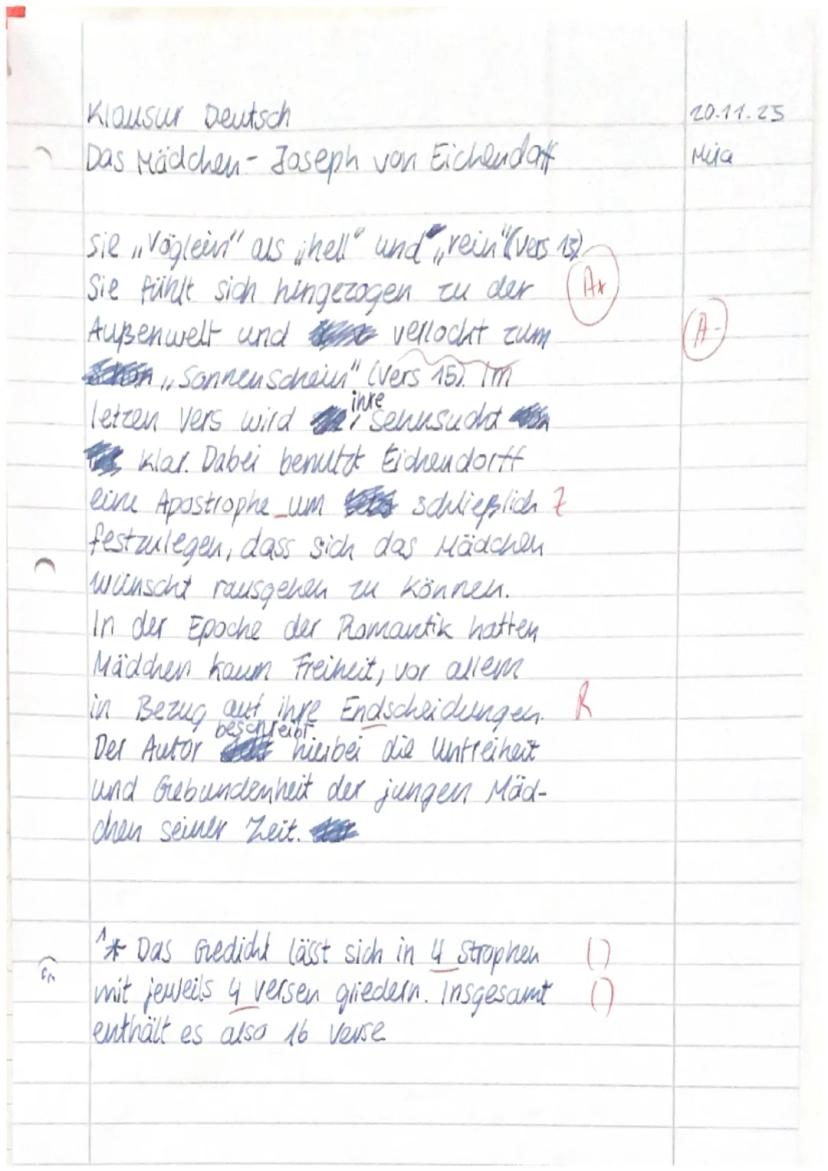 Klausur Deutsch
20.11.25
Das Mädchen - Joseph von Eichendorff
Mila
sie „Vöglein" als „hell" und „rein" (Vers 13)
Sie fühlt sich hingezogen zu der
A*
Außenwelt und verlockt zum
A-
„Sonnenschein" (Vers 15). Im
letzen Vers wird ihre Sehnsucht
klar. Dabei benutzt Eichendorff
eine Apostrophe_um schließlich Z
festzulegen, dass sich das Mädchen
wünscht rausgehen zu können.
In der Epoche der Romantik hatten
Mädchen kaum Freiheit, vor allem
in Bezug auf ihre Endscheidungen. R
Der Autor beschreibt hierbei die Unfreiheit
und Gebundenheit der jungen Mäd-
chen seiner Zeit.
1* Das Gedicht lässt sich in 4 Strophen ()
mit jeweils 4 Versen gliedern. Insgesamt ()
enthält es also 16 Verse